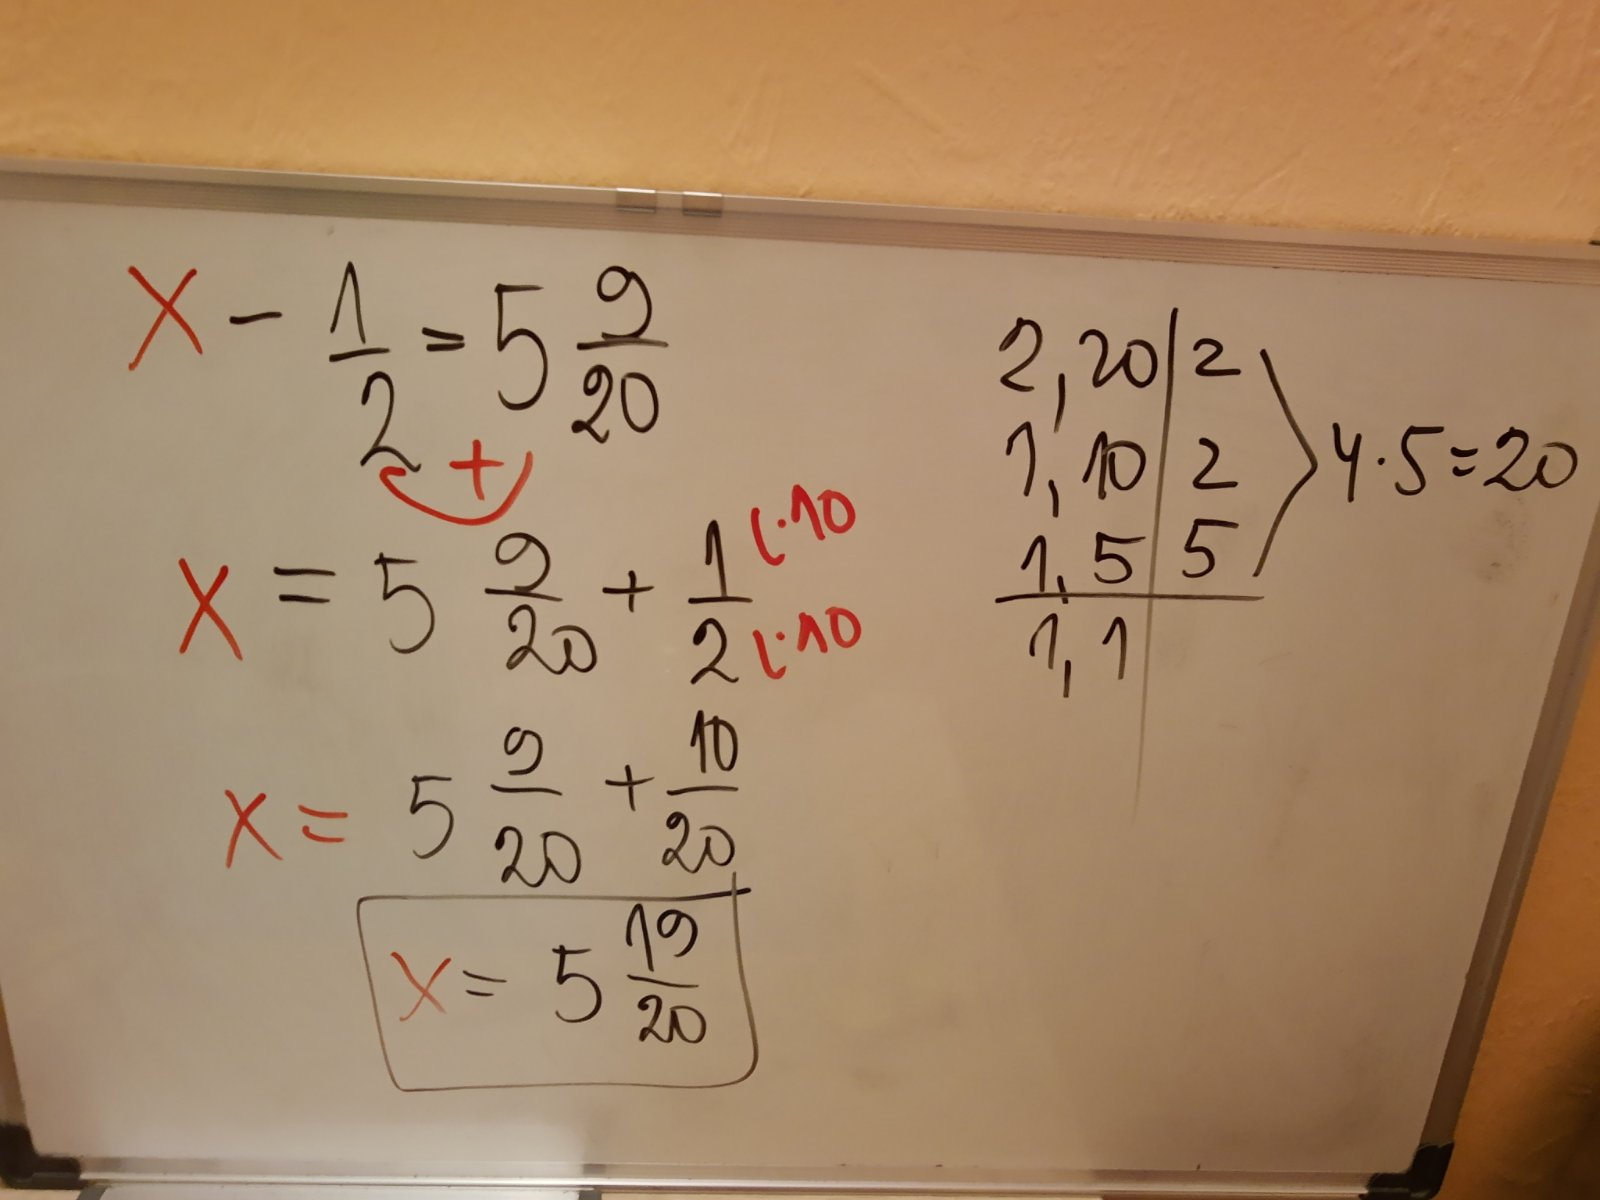 x - 1/2 = 5 9/20
+
x = 5 9/20 + 1/2 (·10 (·10
x = 5 9/20 + 10/20
x = 5 19/20
2, 20 | 2
1, 10 | 2
1, 5 | 5
1, 1 |
4·5=20